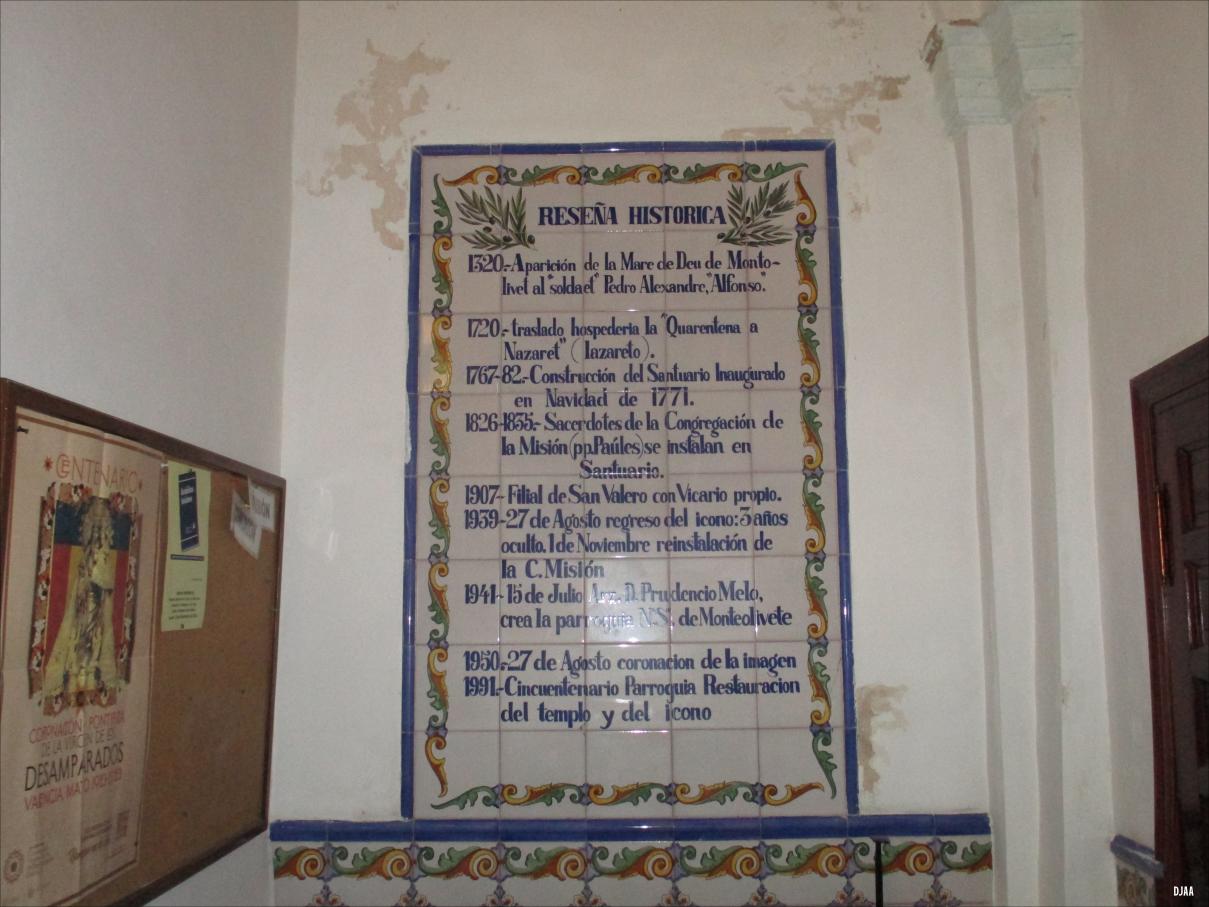 RESEÑA HISTORICA
1320.-Aparición de la Mare de Deu de Monto-
livet al "soldaet" Pedro Alexandre, "Alfonso".
1720.- traslado hospederia la "Quarentena a
Nazaret" (lazareto).
1767-82.-Construcción del Santuario Inaugurado
en Navidad de 1771.
1826-1835.- Sacerdotes de la Congregación de
la Misión (pp.Paúles) se instalan en
Santuario.
1907- Filial de San Valero con Vicario propio.
1939-27 de Agosto regreso del icono: 3 años
oculto. 1 de Noviembre reinstalación de
la C. Misión
1941- 15 de Julio Arz. D. Prudencio Melo,
crea la parroquia N.S. de Monteolivete
1950.-27 de Agosto coronacion de la imagen
1991.-Cincuentenario Parroquia Restauracion
del templo y del icono
CENTENARIO
CORONACIÓN PONTIFICIA
DE LA VIRGEN DE LOS
DESAMPARADOS
VALENCIA MAYO 1923-2023
DJAA